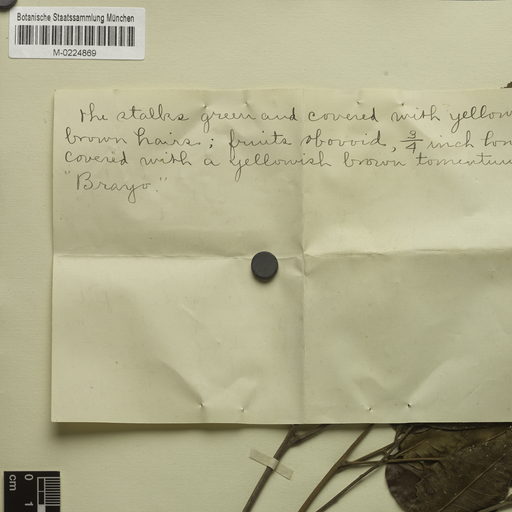 Botanische Staatssammlung München
M-0224869
the stalks green and covered with yellow
brown hairs; fruits obovoid, 3/4 inch lon
covered with a yellowish brown tomentum
"Brayo."
0 1
cm